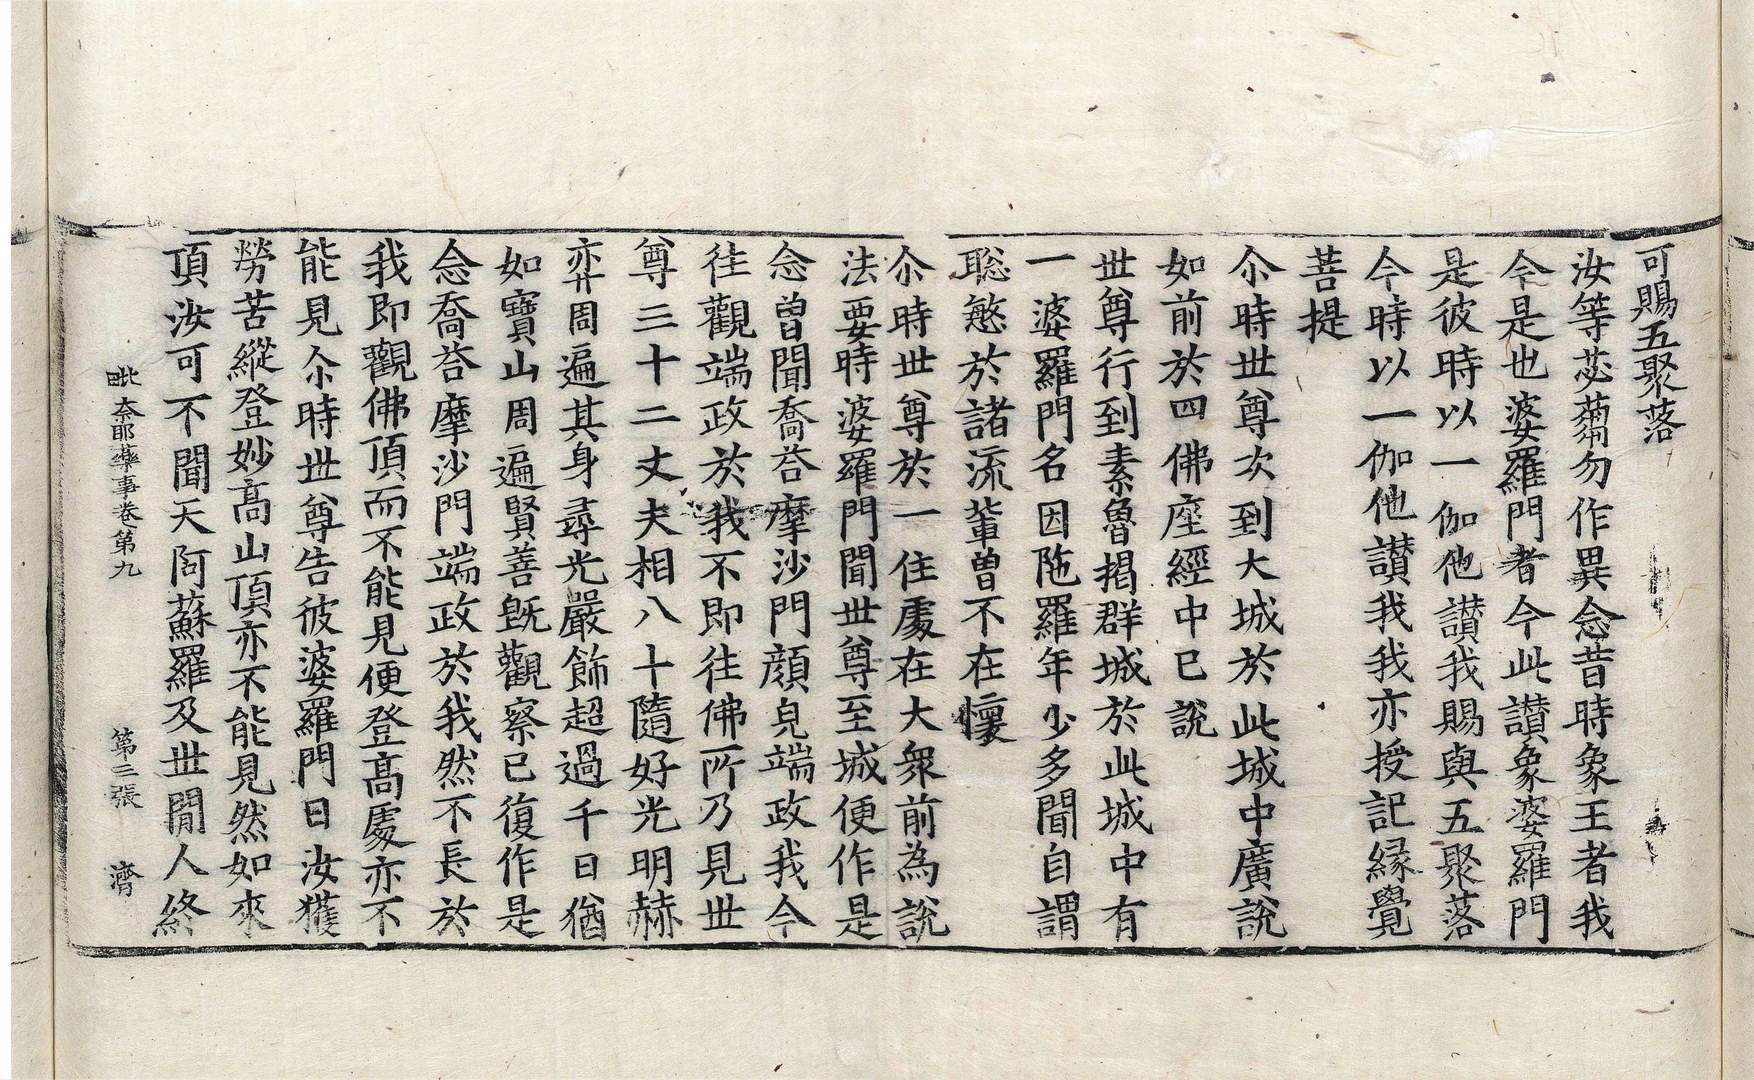 可賜五聚落
汝等苾蒭勿作異念昔時象王者我
今是也婆羅門者今此讃象婆羅門
是彼時以一伽他讃我賜與五聚落
今時以一伽他讃我我亦授記縁覺
菩提
尒時丗尊次到大城於此城中廣說
如前於四佛座經中已說
丗尊行到素魯揭群城於此城中有
一婆羅門名因陁羅年少多聞自謂
聡慜於諸流軰曽不在懷
尒時丗尊於一住䖏在大衆前為說
法要時婆羅門聞丗尊至城便作是
念曽聞喬荅摩沙門顔皃端政我今
往觀端政於我不即往佛所乃見丗
尊三十二丈夫相八十隨好光明赫
弈周遍其身尋光嚴飾超過千日猶
如寳山周遍賢善旣觀察已復作是
念喬荅摩沙門端政於我然不長於
我即觀佛頂而不能見便登髙䖏亦不
能見尒時丗尊告彼婆羅門曰汝獲
勞苦縱登妙髙山頂亦不能見然如來
頂汝可不聞天阿蘇羅及丗閒人終
毗奈耶藥事卷第九　第三張　濟